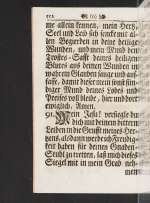 102
me allein kennen, mein Hertz,
Seel und Leib sich sencke mit al-
len Begierden in deine heilige
Wunden, und mein Mund dein
Trostes-Safft deines heiligen
Blutes aus deinen Wunden im
wahren Glauben sauge und auf-
fasse, damit dieser mein sonst ster-
biger Mund deines Lodes und
Preises voll bleibe, hier und dort
ewiglich. Amen.
91. Mein Jesu! versiegle du
dich mit deinem bittern
Leiden in die Grufft meines Her-
tzens, als dann werde ich Freudig-
keit haben für deinen Gnaden-
Stuhl zu treten, laß mich dieses
Siegel mit in mein Grab neh-
men